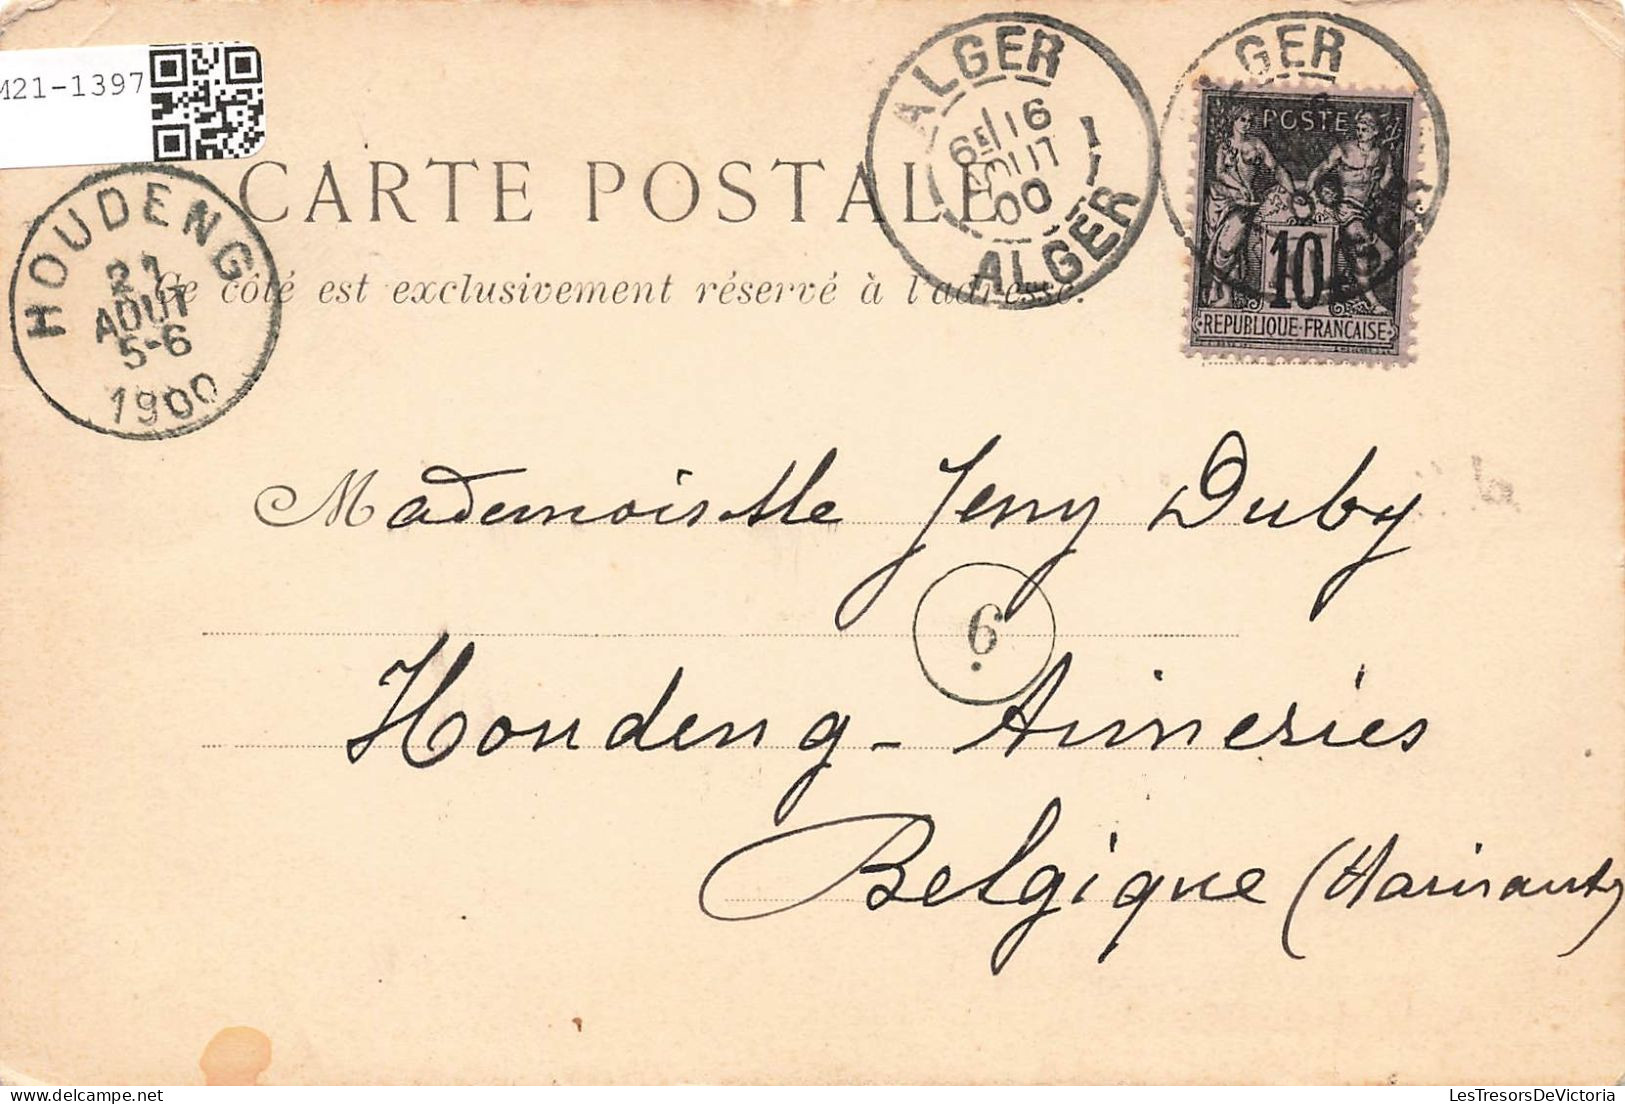 M21-1397
CARTE POSTALE
Ce côté est exclusivement réservé à l'adresse.
HOUDENG
AOUT
5-6
1900
ALGER
6E/16
AOUT
00
ALGER
ALGER
POSTE
10
REPUBLIQUE FRANÇAISE
Mademoiselle Jeny Duby
6
Houdeng-Aimeries
Belgique (Hainaut)
LesTresorsDeVictoria